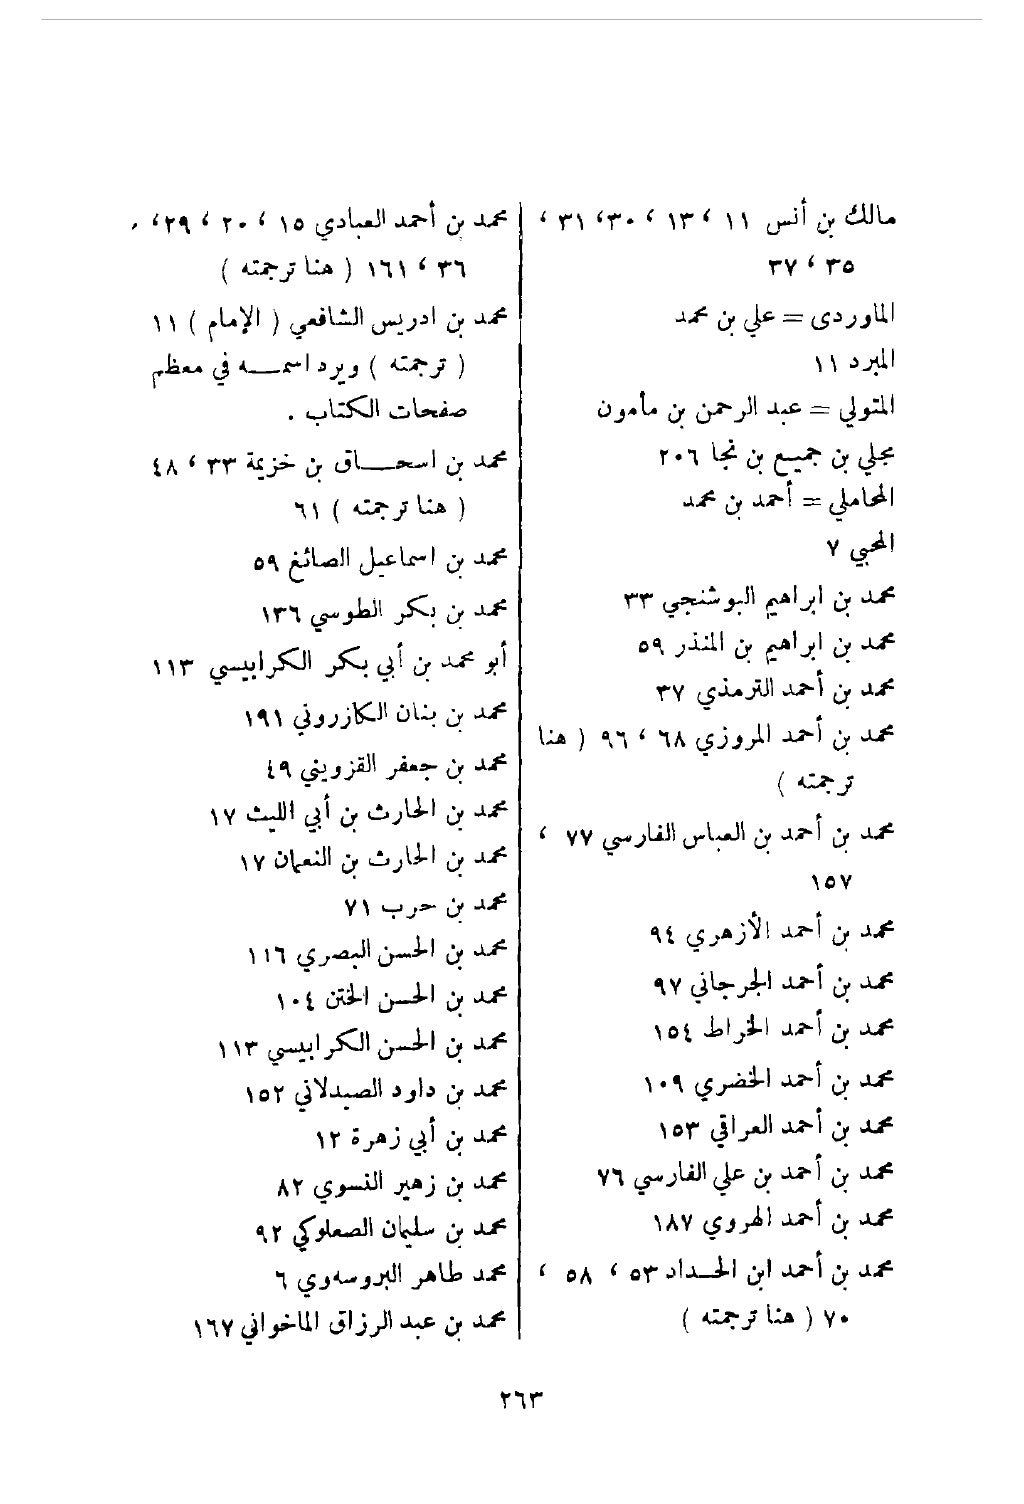 مالك بن أنس ١١ ، ١٣ ، ٣٠ ، ٣١ ،
٣٥ ، ٣٧
الماوردى = علي بن محمد
المبرد ١١
المتولي = عبد الرحمن بن مأمون
مجلي بن جميع بن نجا ٢٠٦
المحاملي = أحمد بن محمد
المحبي ٧
محمد بن ابراهيم البوشنجي ٣٣
محمد بن ابراهيم بن المنذر ٥٩
محمد بن أحمد الترمذي ٣٧
محمد بن أحمد المروزي ٦٨ ، ٩٦ ( هنا
ترجمته )
محمد بن أحمد بن العباس الفارسي ٧٧ ،
١٥٧
محمد بن أحمد الأزهري ٩٤
محمد بن أحمد الجرجاني ٩٧
محمد بن أحمد الخراط ١٥٤
محمد بن أحمد الخضري ١٠٩
محمد بن أحمد العراقي ١٥٣
محمد بن أحمد بن علي الفارسي ٧٦
محمد بن أحمد الهروي ١٨٧
محمد بن أحمد ابن الحـداد ٥٣ ، ٥٨ ،
٧٠ ( هنا ترجمته )
محمد بن أحمد العبادي ١٥ ، ٢٠ ، ٢٩ ، .
٣٦ ، ١٦١ ( هنا ترجمته )
محمد بن ادريس الشافعي ( الإمام ) ١١
( ترجمته ) ويرد اسمـــه في معظم
صفحات الكتاب .
محمد بن اسحـــاق بن خزيمة ٣٣ ، ٤٨
( هنا ترجمته ) ٦١
محمد بن اسماعيل الصائغ ٥٩
محمد بن بكر الطوسي ١٣٦
أبو محمد بن أبي بكر الكرابيسي ١١٣
محمد بن بنان الكازروني ١٩١
محمد بن جعفر القزويني ٤٩
محمد بن الحارث بن أبي الليث ١٧
محمد بن الحارث بن النعمان ١٧
محمد بن حرب ٧١
محمد بن الحسن البصري ١١٦
محمد بن الحسن الختن ١٠٤
محمد بن الحسن الكرابيسي ١١٣
محمد بن داود الصيدلاني ١٥٢
محمد بن أبي زهرة ١٢
محمد بن زهير النسوي ٨٢
محمد بن سليمان الصعلوكي ٩٢
محمد طاهر البروسهوي ٦
محمد بن عبد الرزاق الماخواني ١٦٧
٢٦٣